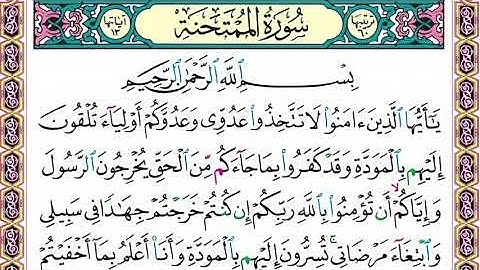 ترتيبها ٦٠ سُورَةُ الْمُمْتَحِنَةِ آياتها ١٣
بِسْمِ ٱللَّهِ ٱلرَّحْمَٰنِ ٱلرَّحِيمِ
يَٰٓأَيُّهَا ٱلَّذِينَ ءَامَنُوا۟ لَا تَتَّخِذُوا۟ عَدُوِّى وَعَدُوَّكُمْ أَوْلِيَآءَ تُلْقُونَ
إِلَيْهِم بِٱلْمَوَدَّةِ وَقَدْ كَفَرُوا۟ بِمَا جَآءَكُم مِّنَ ٱلْحَقِّ يُخْرِجُونَ ٱلرَّسُولَ
وَإِيَّاكُمْ ۙ أَن تُؤْمِنُوا۟ بِٱللَّهِ رَبِّكُمْ إِن كُنتُمْ خَرَجْتُمْ جِهَٰدًا فِى سَبِيلِى
وَٱبْتِغَآءَ مَرْضَاتِى ۚ تُسِرُّونَ إِلَيْهِم بِٱلْمَوَدَّةِ وَأَنَا۠ أَعْلَمُ بِمَآ أَخْفَيْتُمْ